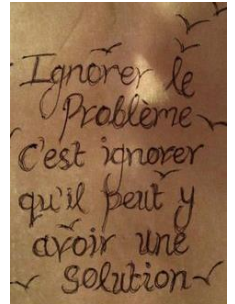 Ignorer le
Problème
c'est ignorer
qu'il peut y
avoir une
solution